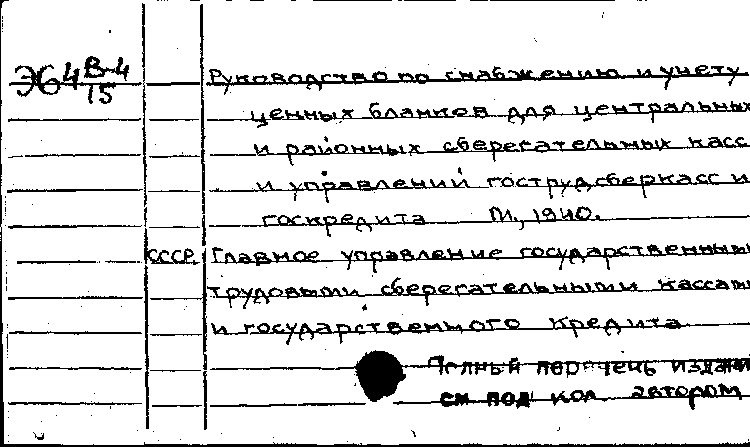 Э64 В-4
15
Руководство по снабжению и учету
ценных бланков для центральных
и районных сберегательных касс
и управлений гострудсберкасс и
госкредита М., 1940.
СССР. Главное управление государственными
трудовыми сберегательными кассами
и государственного кредита
Полный перечень изданий
см под кол автором